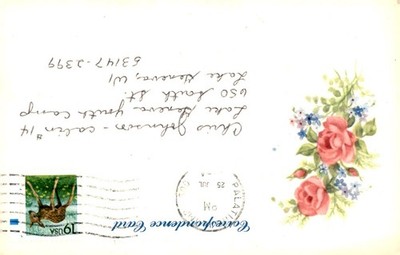 Correspondence Card
PALATI
PM
25 JUL
19USA
Chris Johnson - cabin #14
Lake Geneva youth Camp
650 South St.
Lake Geneva, WI
53147-2399